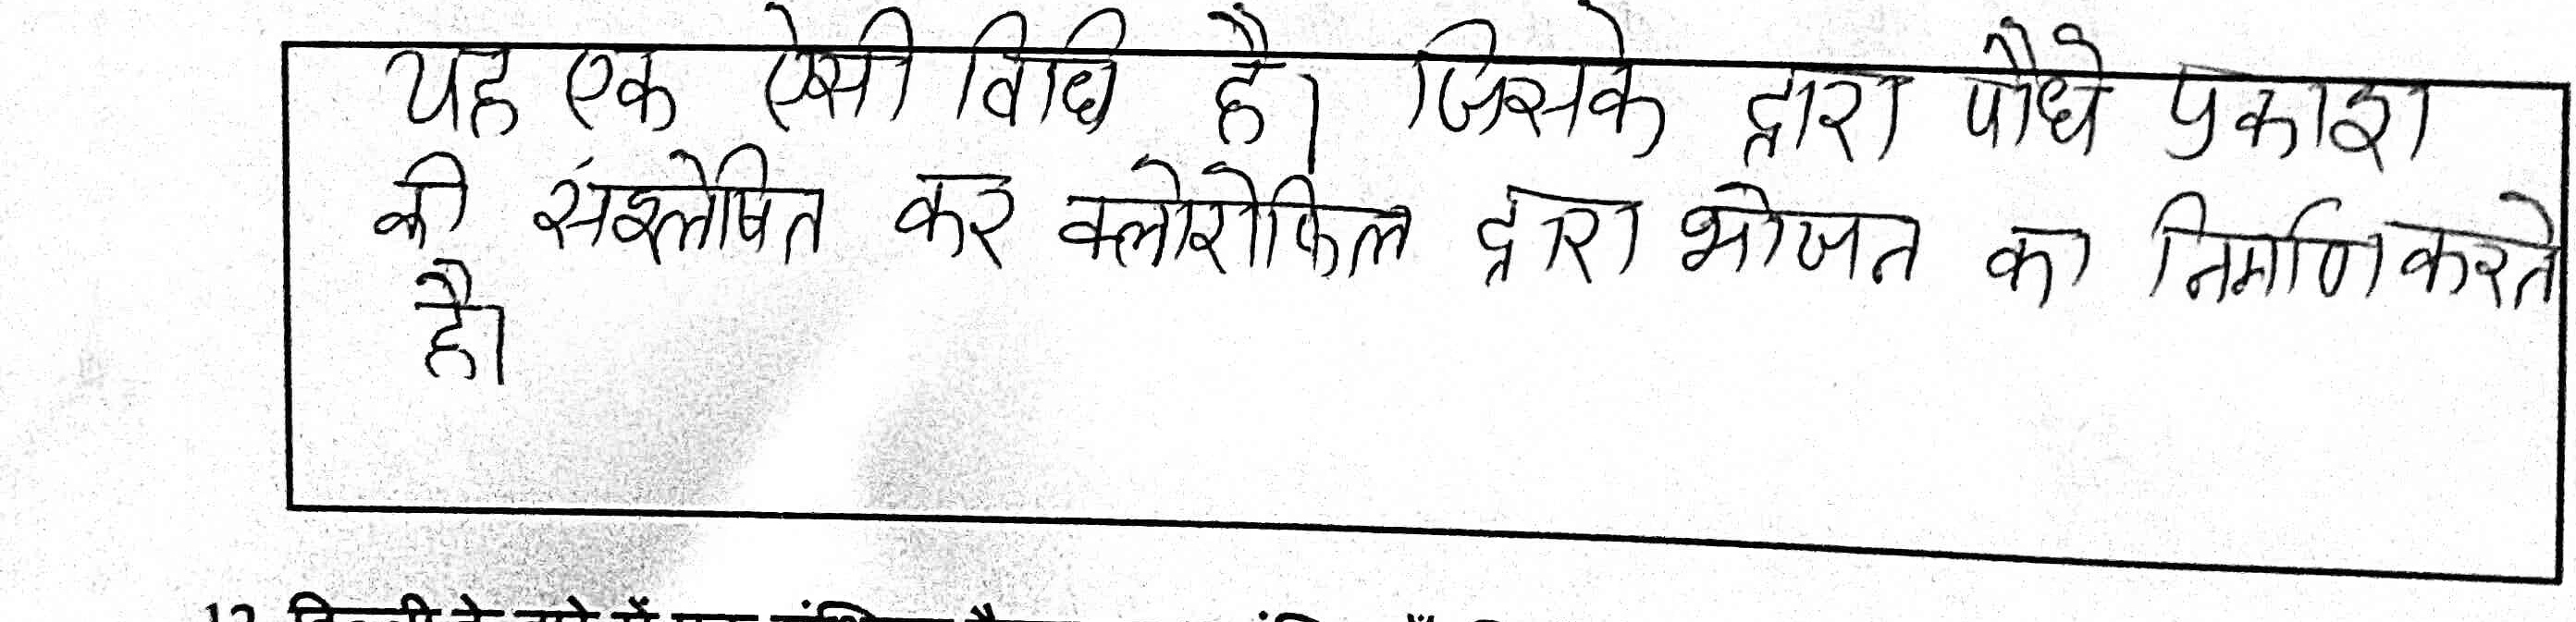 यह एक ऐसी विधि है। जिसके द्वारा पौधे प्रकाश
की संश्लेषित कर क्लोरोफिल द्वारा भोजन का निर्माण करते
है।